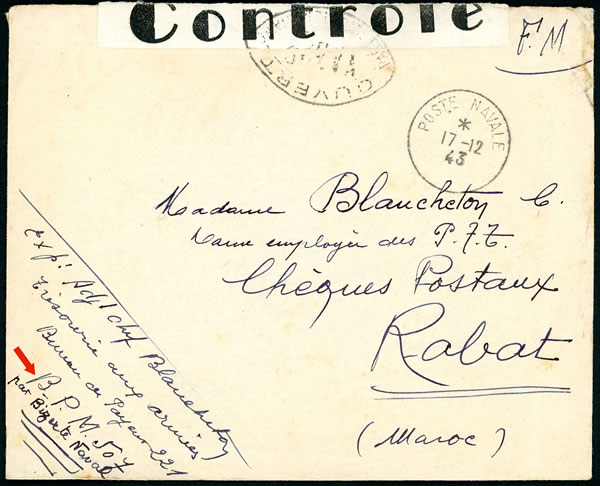 Controle
F.M
OUVERT
POSTE NAVALE
*
17-12
43
Madame Blancheton C.
Dame employée des P.T.T.
Chèques Postaux
Rabat
(Maroc)
Exp: Adjt chef Blancheton
Trésorerie aux armées
Bureau de Payeur 221
B.P.M. 507
par Bizerte Naval